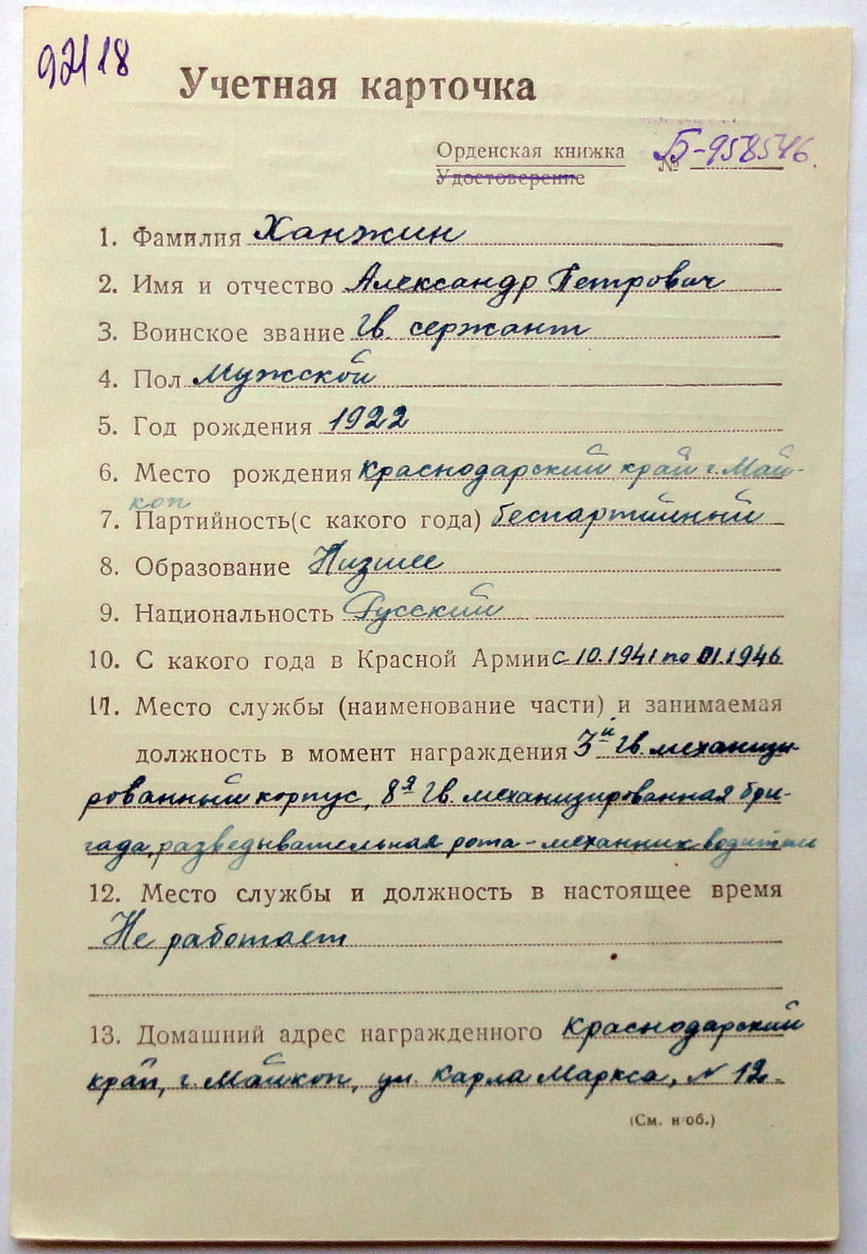 92118
Учетная карточка
Орденская книжка № Б-958546.
Удостоверение
1. Фамилия Ханжин
2. Имя и отчество Александр Петрович
3. Воинское звание Гв. сержант
4. Пол Мужской
5. Год рождения 1922
6. Место рождения Краснодарский край г. Май-
коп
7. Партийность(с какого года) беспартийный
8. Образование Низшее
9. Национальность Русский
10. С какого года в Красной Армии с 10.1941 по 01.1946
11. Место службы (наименование части) и занимаемая
должность в момент награждения 3й Гв. механизи-
рованный корпус, 8я Гв. механизированная бри-
гада, разведывательная рота - механик водитель
12. Место службы и должность в настоящее время
Не работает
13. Домашний адрес награжденного Краснодарский
край, г. Майкоп, ул. Карла Маркса, N 12.
(См. н об.)